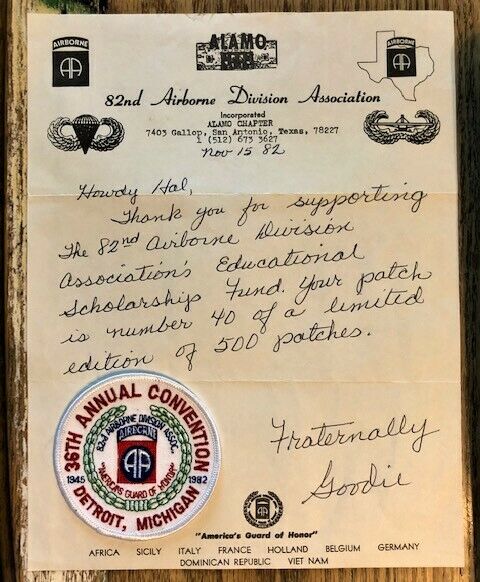 AIRBORNE
AA
ALAMO
AIRBORNE
AA
82nd Airborne Division Association
Incorporated
ALAMO CHAPTER
7403 Gallop, San Antonio, Texas, 78227
1 (512) 673 3627
Nov 15 82
Howdy Hal,
Thank you for supporting
The 82nd Airborne Division
Association's Educational
Scholarship Fund. Your patch
is number 40 of a limited
edition of 500 patches.
Fraternally
Goodie
36TH ANNUAL CONVENTION
82ND AIRBORNE DIVISION ASSOC.
AIRBORNE
AA
"AMERICA'S GUARD OF HONOR"
1946 1982
DETROIT, MICHIGAN
AA
"America's Guard of Honor"
AFRICA SICILY ITALY FRANCE HOLLAND BELGIUM GERMANY
DOMINICAN REPUBLIC VIET NAM